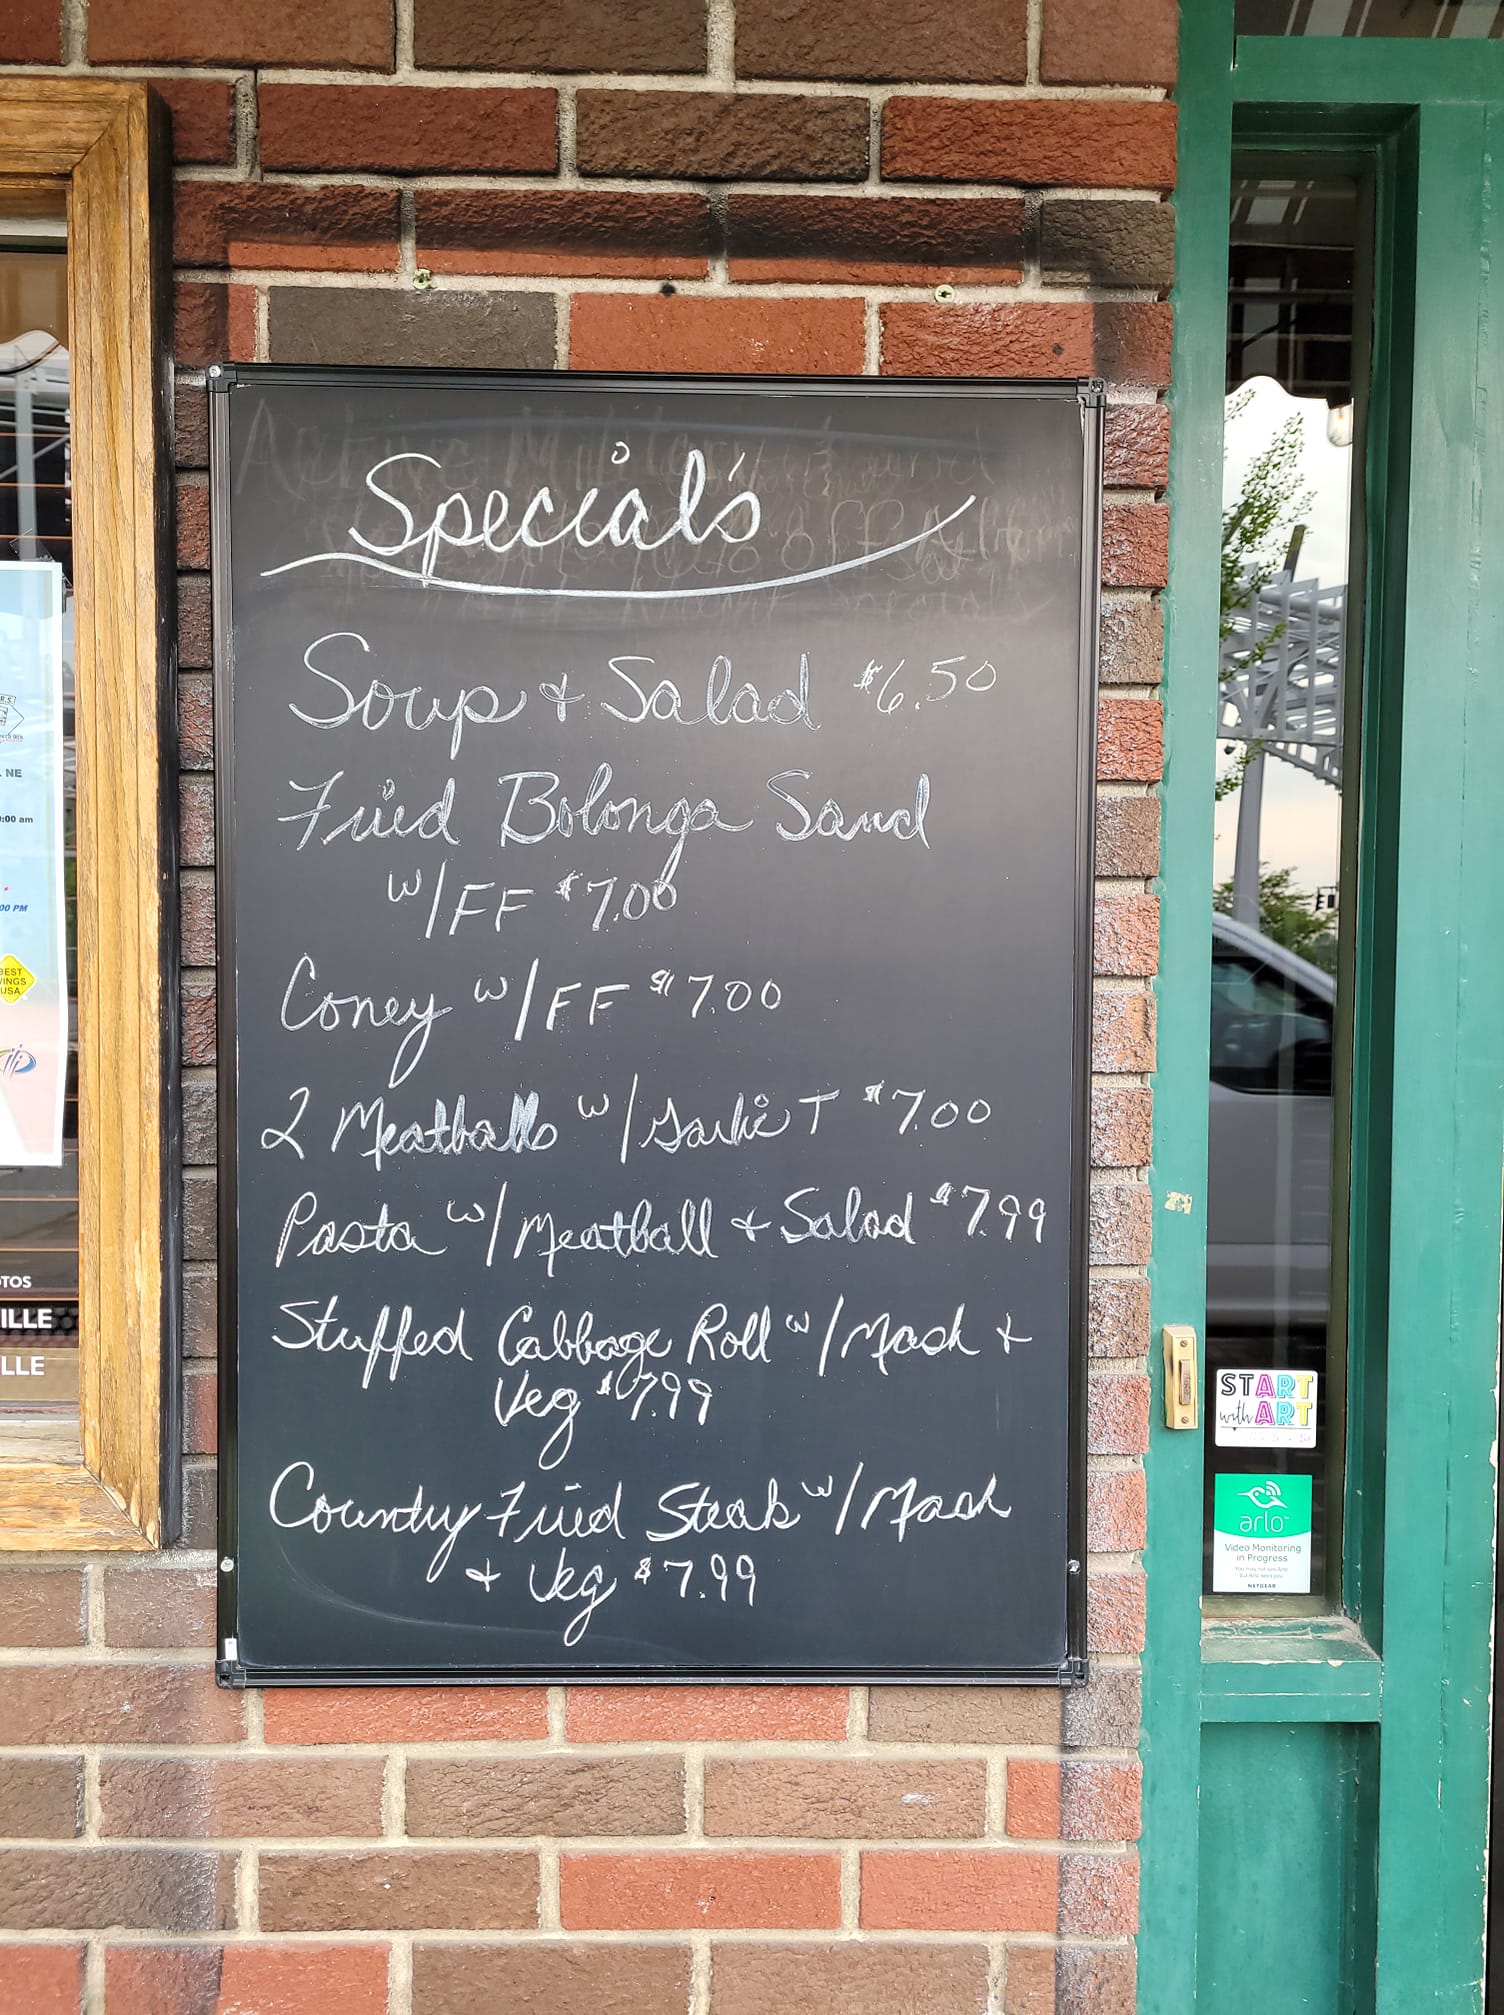 Special's
Soup & Salad $6.50
Fried Bolonga Sand
w/FF $7.00
Coney w/FF $7.00
2 Meatballs w/Garlic T $7.00
Pasta w/Meatball & Salad $7.99
Stuffed Cabbage Roll w/Mash &
Veg $7.99
Country Fried Steak w/Mash
& Veg $7.99
NE
:00 am
00 PM
BEST
WINGS
USA
OTOS
ILLE
LLE
START
with ART
arlo
Video Monitoring
in Progress
NETGEAR